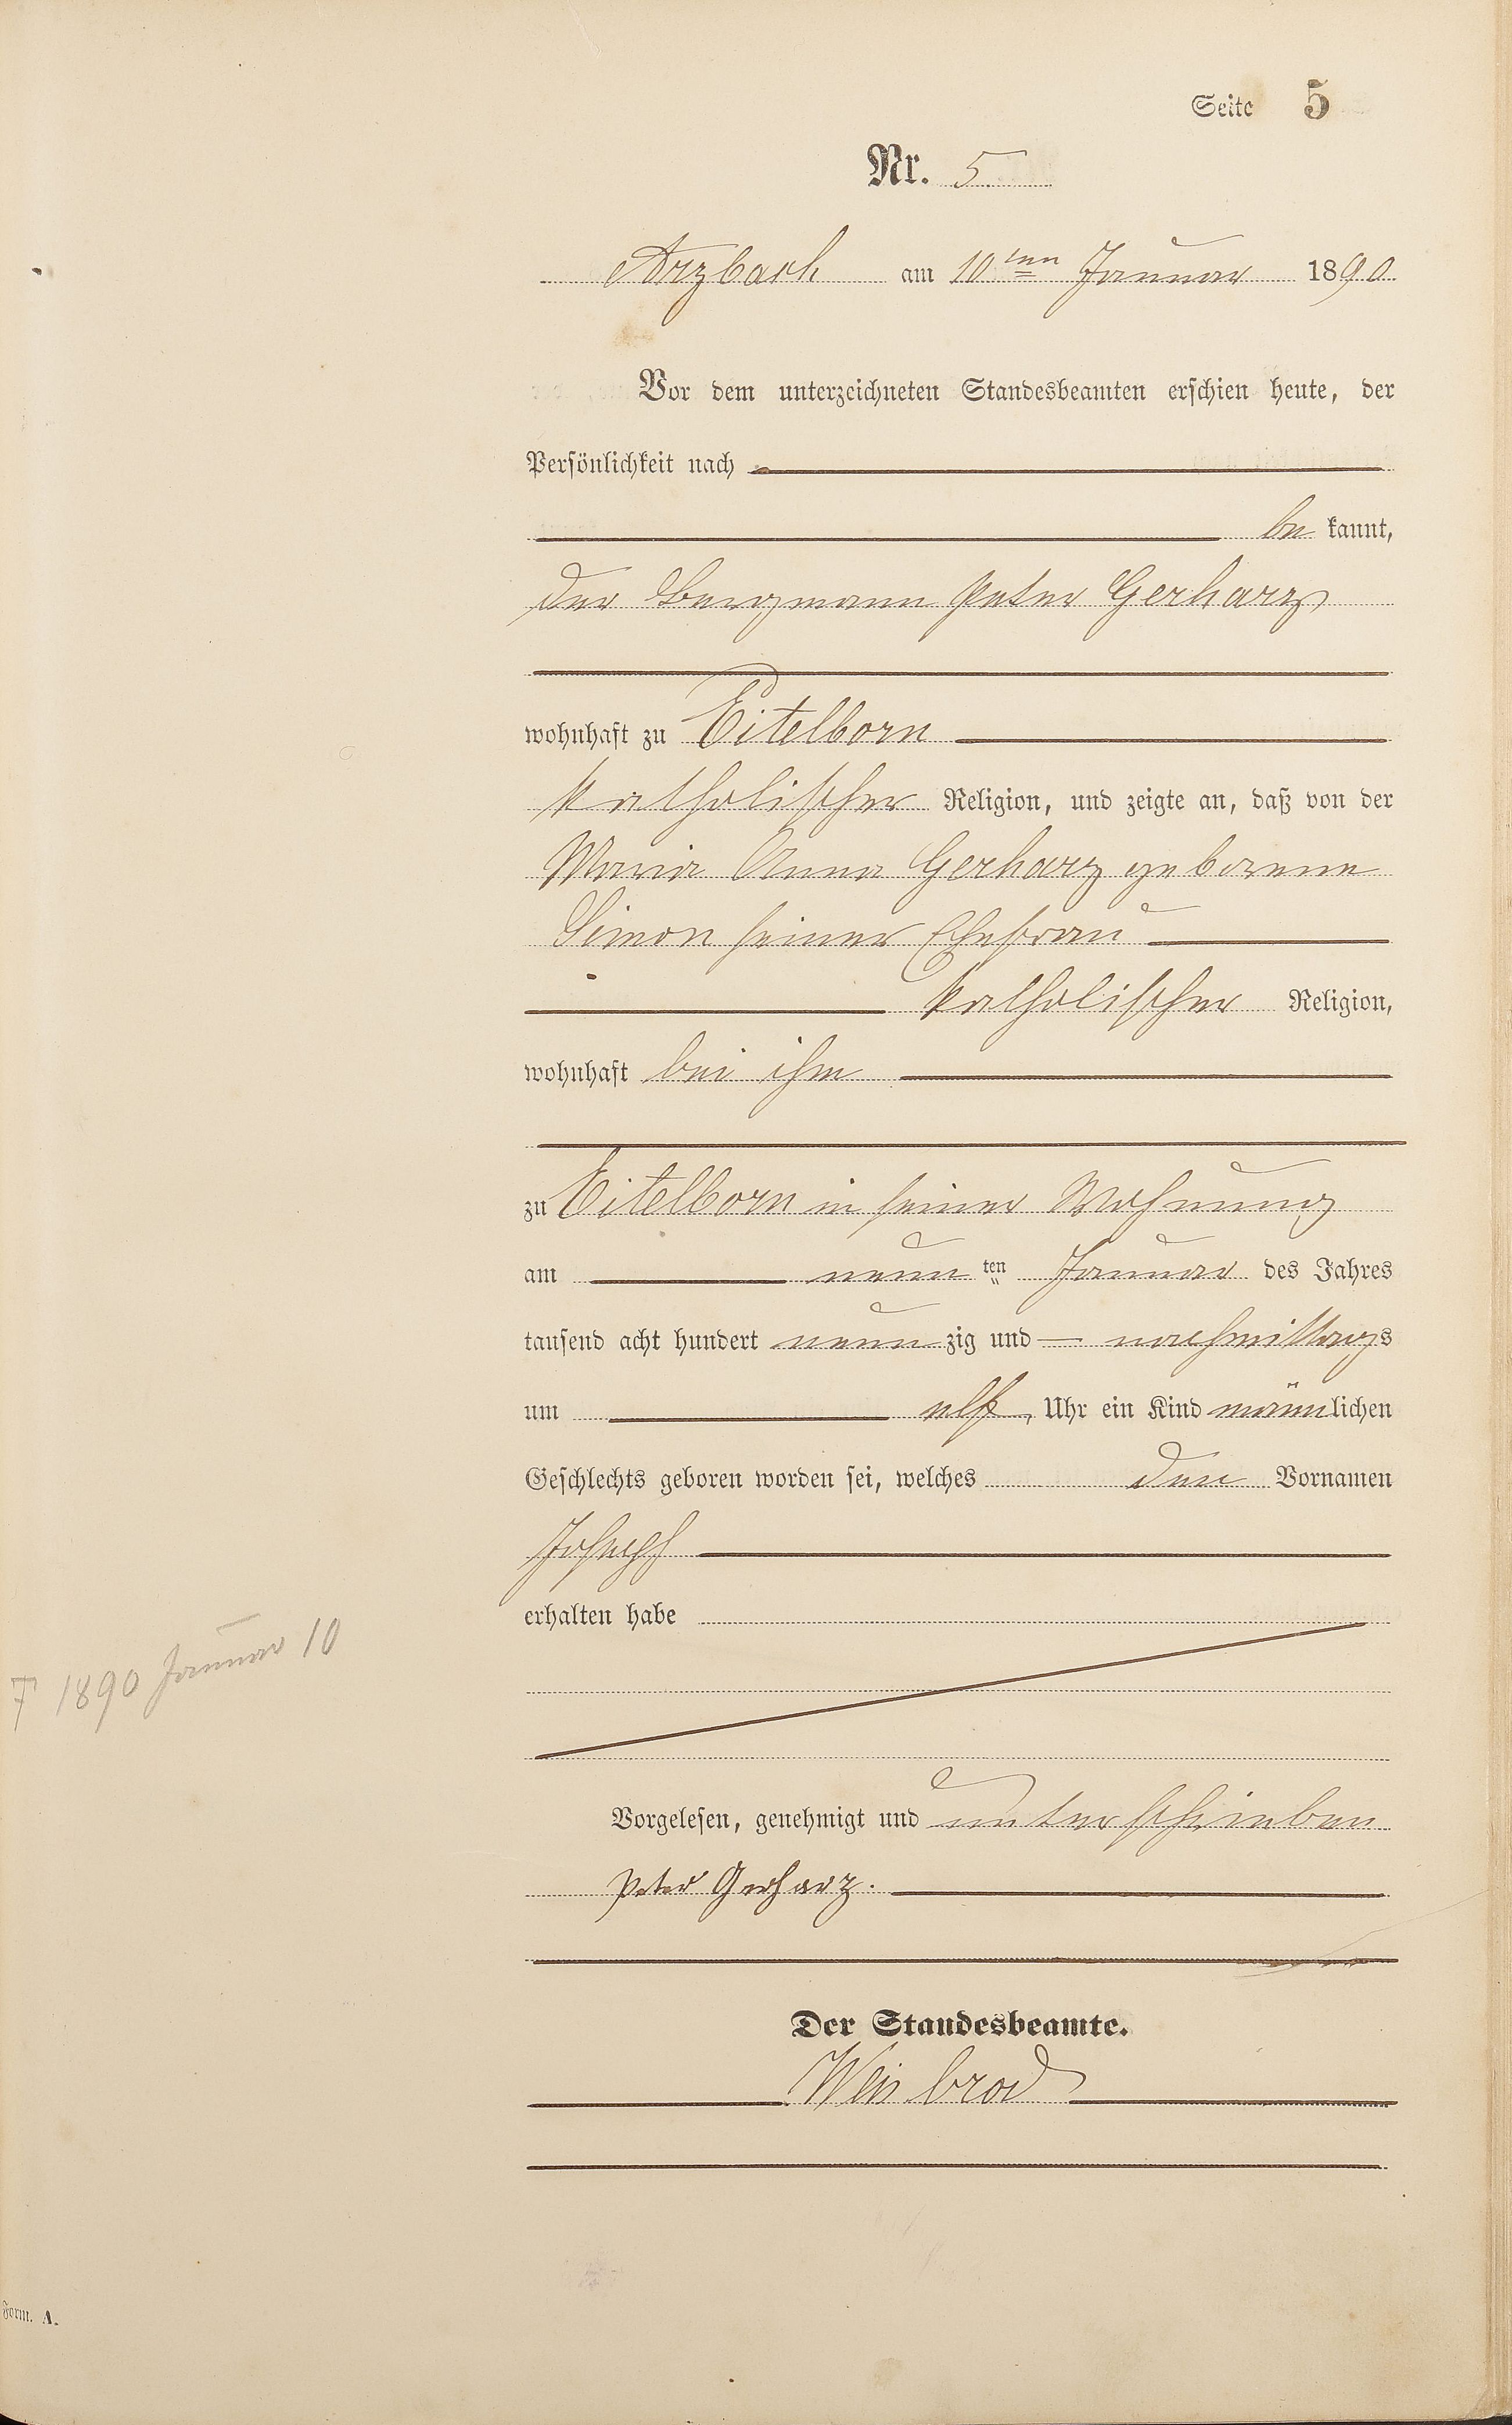 Seite 5
Nr. 5
Arzbach am 10ten Januar 1890
Vor dem unterzeichneten Standesbeamten erschien heute, der
Persönlichkeit nach
be kannt,
der Bergmann Peter Gerharz
wohnhaft zu Eitelborn
katholischer Religion, und zeigte an, daß von der
Maria Anna Gerharz geborene
Simon seiner Ehefrau
katholischer Religion,
wohnhaft bei ihm
zu Eitelborn in seiner Wohnung
am neun ten Januar des Jahres
tausend acht hundert neun zig und nachmittags
um elf Uhr ein Kind männlichen
Geschlechts geboren worden sei, welches den Vornamen
Joseph
erhalten habe
† 1890 Januar 10
Vorgelesen, genehmigt und unterschrieben
Peter Gerharz.
Der Standesbeamte.
Weisbrod
Form. A.